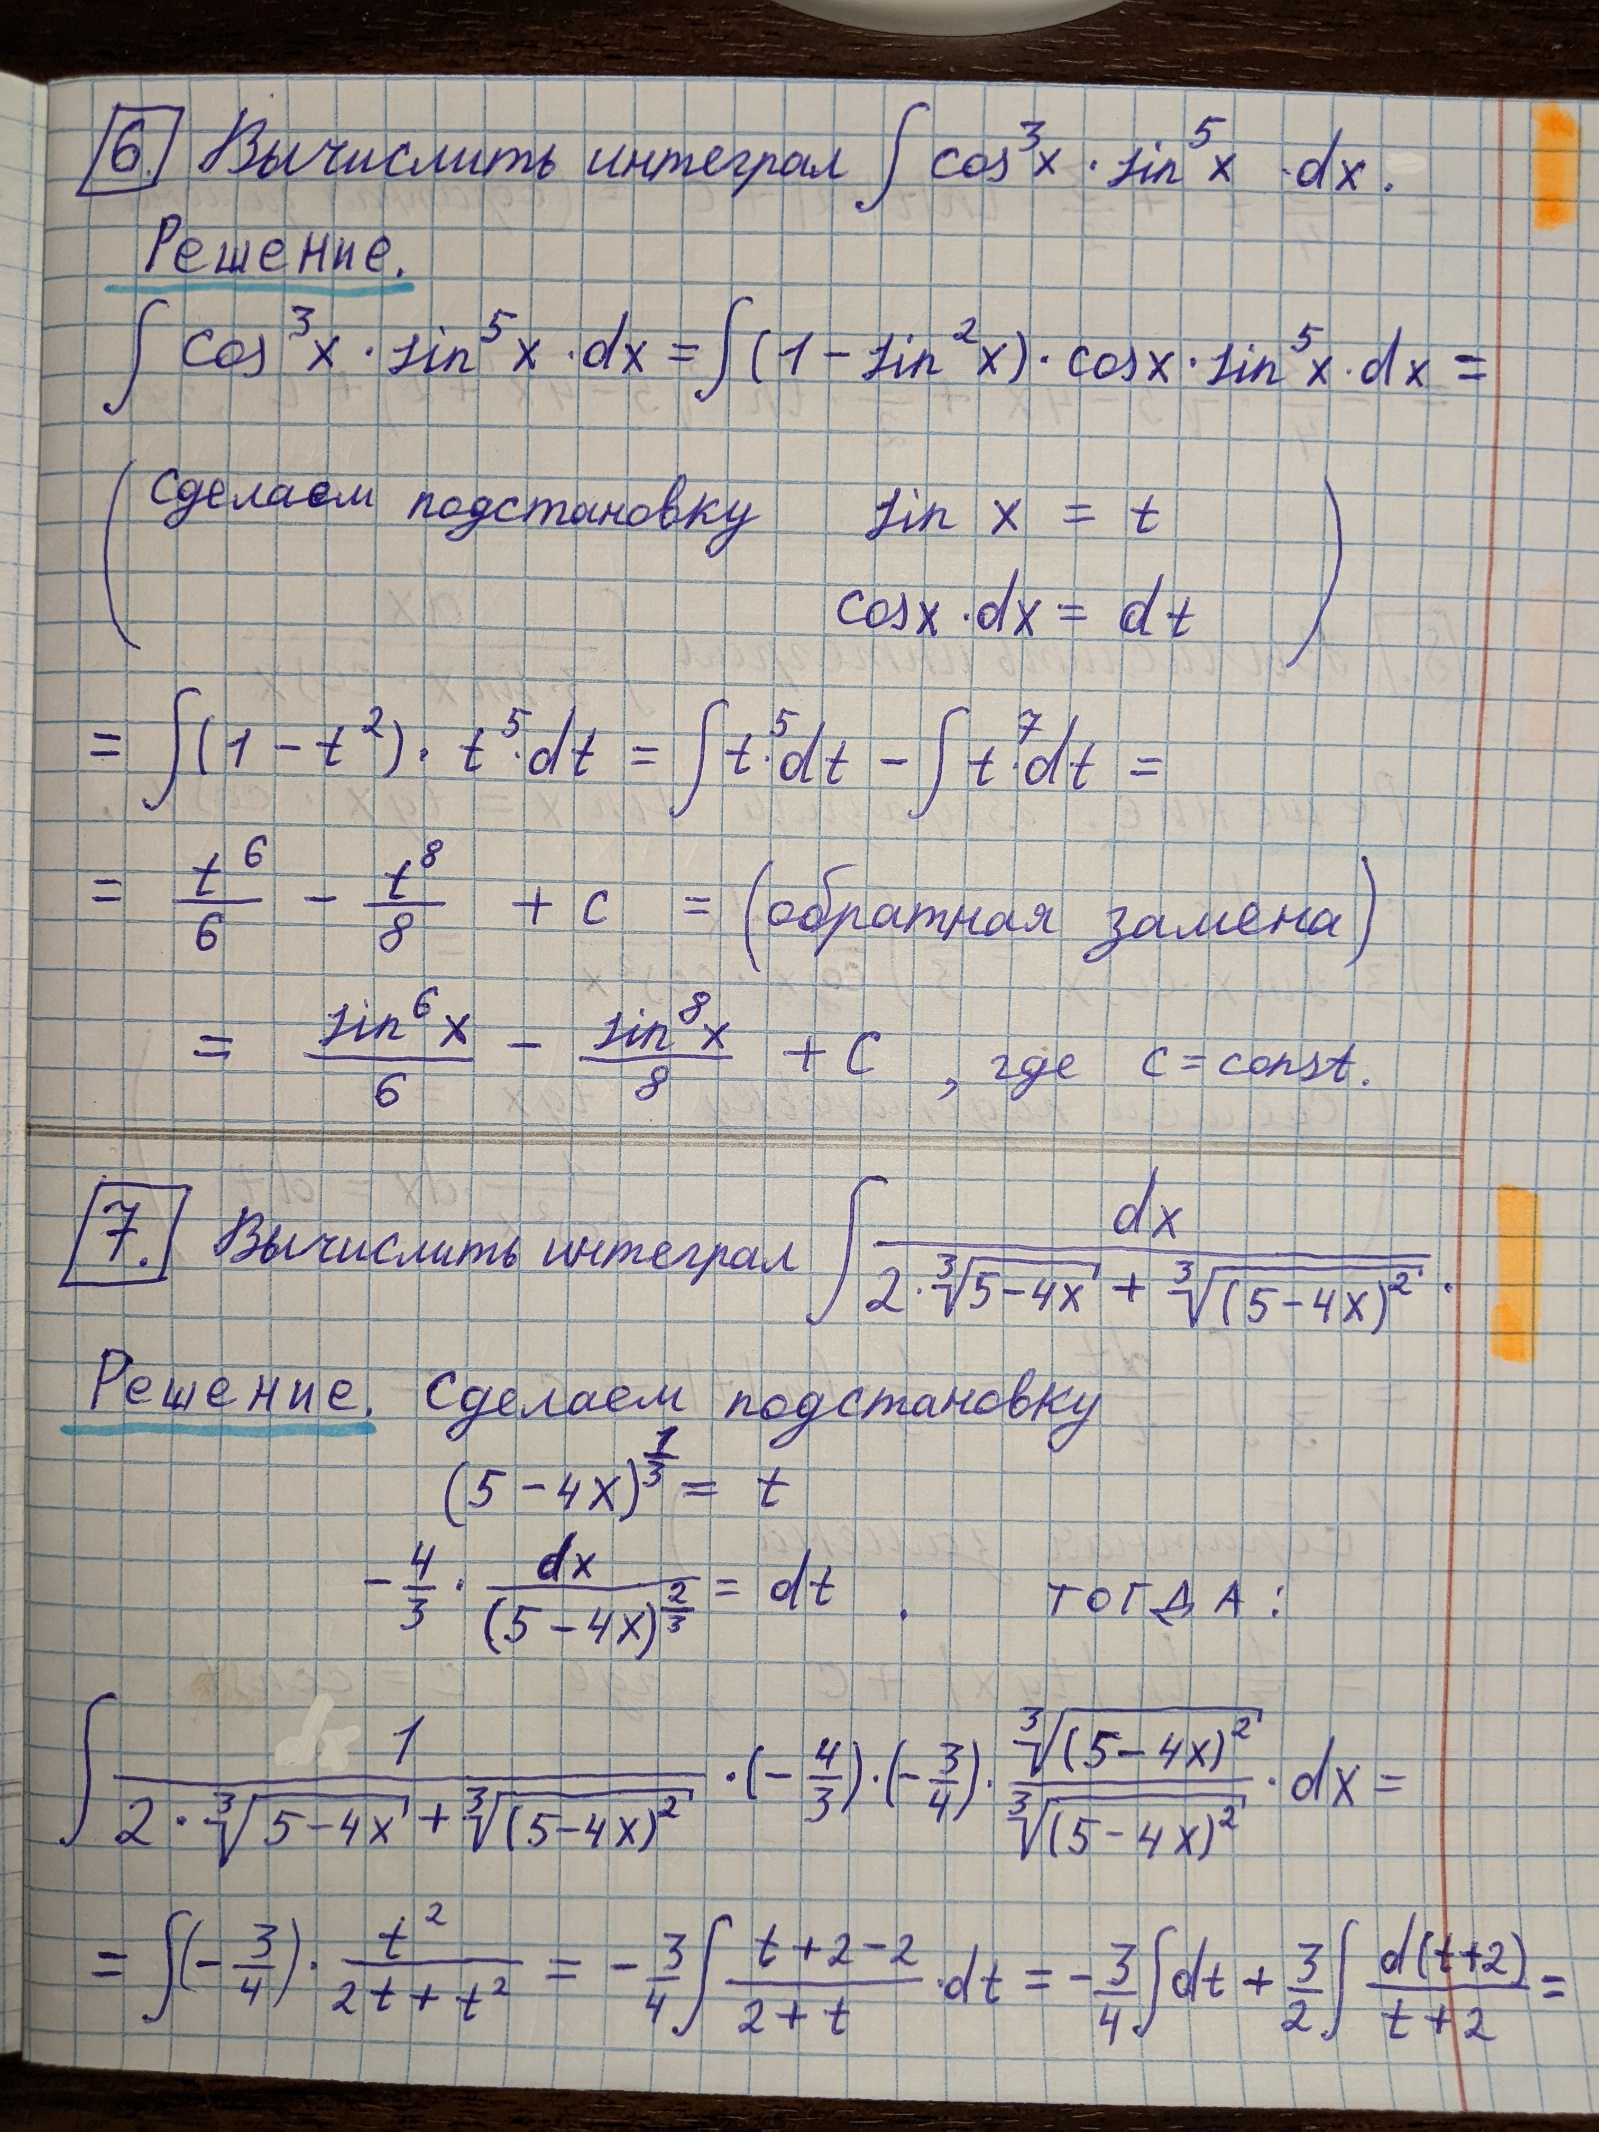 6. Вычислить интеграл ∫ cos³x · sin⁵x · dx.
Решение.
∫ cos³x · sin⁵x · dx = ∫ (1 − sin²x) · cosx · sin⁵x · dx =
(Сделаем подстановку sin x = t
cosx · dx = dt)
= ∫ (1 − t²) · t⁵ · dt = ∫ t⁵ · dt − ∫ t⁷ · dt =
= t⁶/6 − t⁸/8 + c = (обратная замена)
= sin⁶x/6 − sin⁸x/8 + C, где c = const.
7. Вычислить интеграл ∫ dx/(2 · ∛(5−4x) + ∛((5−4x)²)).
Решение. Сделаем подстановку
(5 − 4x)^(1/3) = t
−4/3 · dx/(5 − 4x)^(2/3) = dt. ТОГДА:
∫ 1/(2 · ∛(5−4x) + ∛((5−4x)²)) · (−4/3) · (−3/4) · ∛((5−4x)²)/∛((5−4x)²) · dx =
= ∫ (−3/4) · t²/(2t + t²) = −3/4 ∫ (t+2−2)/(2+t) · dt = −3/4 ∫ dt + 3/2 ∫ d(t+2)/(t+2) =